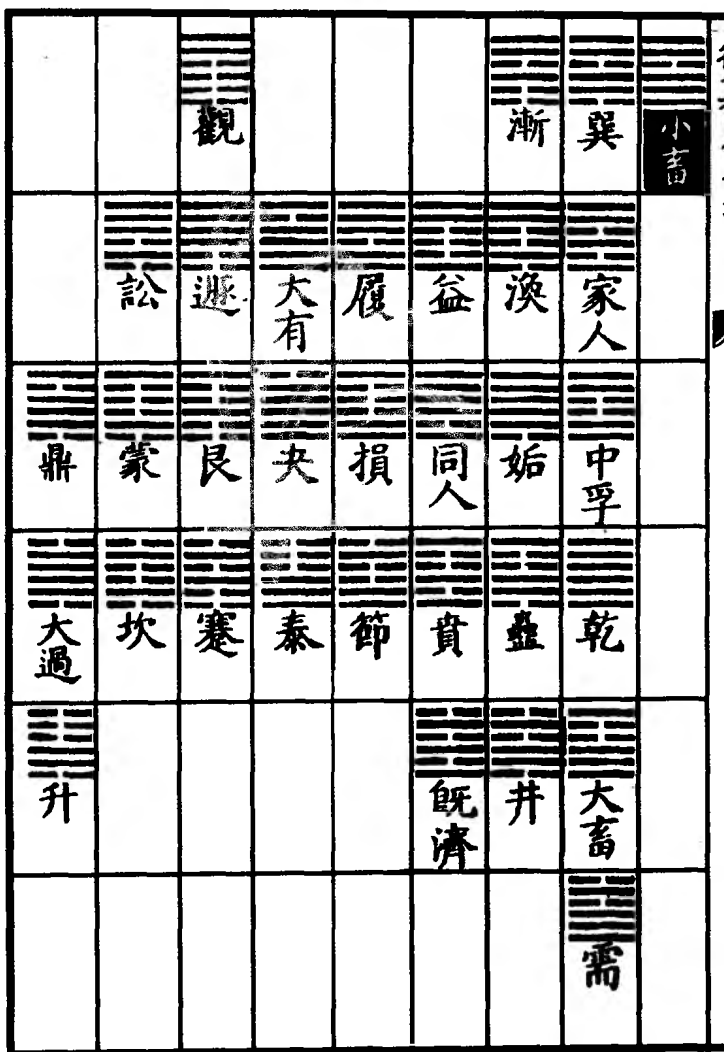 小畜
巽
家人
中孚
乾
大畜
需
漸
渙
姤
蠱
井
益
同人
賁
既濟
履
損
節
大有
夬
泰
觀
遯
艮
蹇
訟
蒙
坎
鼎
大過
升